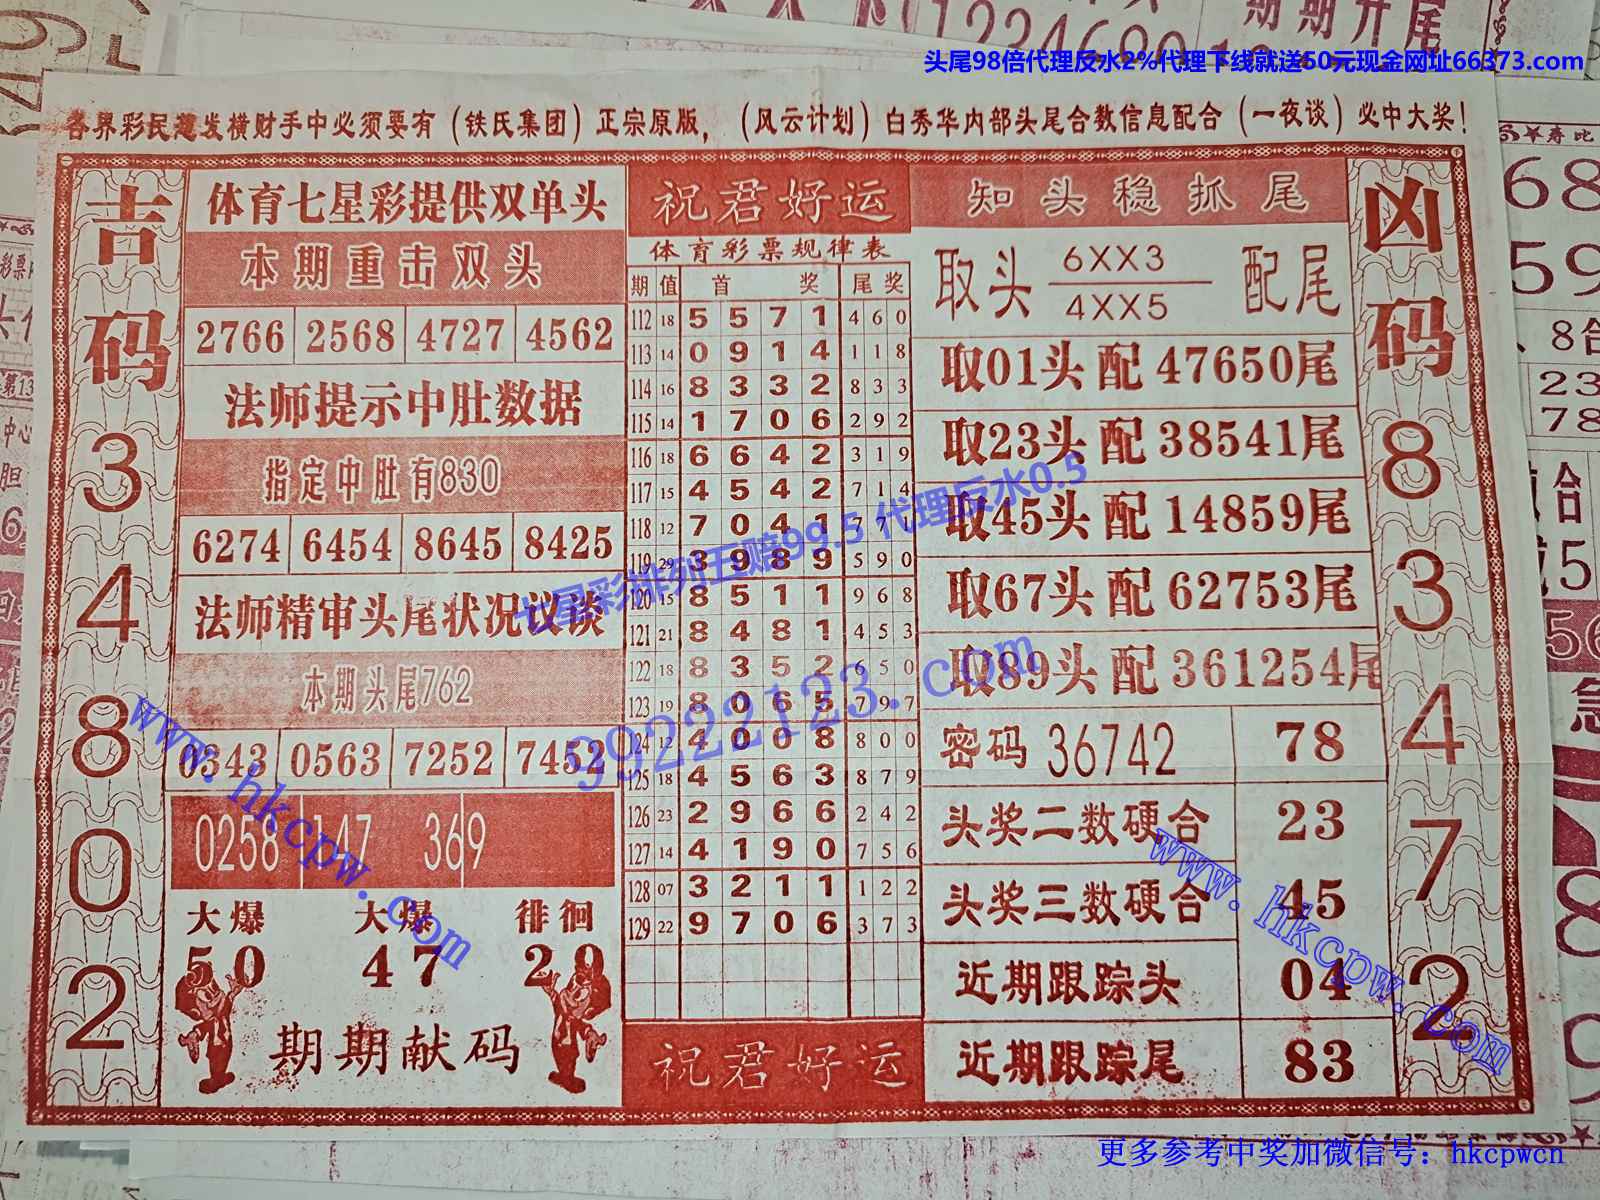 头尾98倍代理反水2%代理下线就送50元现金网址66373.com
各界彩民趋发横财手中必须要有（铁氏集团）正宗原版，（风云计划）白秀华内部头尾合数信息配合（一夜谈）必中大奖！
吉码
3
4
8
0
2
体育七星彩提供双单头
本期重击双头
2766 2568 4727 4562
法师提示中肚数据
指定中肚有830
6274 6454 8645 8425
法师精审头尾状况议谈
本期头尾762
0343 0563 7252 7452
0258 147 369
大爆 大爆 徘徊
50 47 29
期期献码
祝君好运
体育彩票规律表
期 值 首 奖 尾 奖
112 18 5 5 7 1 4 6 0
113 14 0 9 1 4 1 1 8
114 16 8 3 3 2 8 3 3
115 14 1 7 0 6 2 9 2
116 18 6 6 4 2 3 1 9
117 15 4 5 4 2 7 1 4
118 12 7 0 4 1 7 7 1
119 29 3 9 8 9 5 9 0
120 15 8 5 1 1 9 6 8
121 21 8 4 8 1 4 5 3
122 18 8 3 5 2 6 5 0
123 19 8 0 6 5 7 9 7
124 12 4 0 0 8 8 0 0
125 18 4 5 6 3 8 7 9
126 23 2 9 6 6 2 4 2
127 14 4 1 9 0 7 5 6
128 07 3 2 1 1 1 2 2
129 22 9 7 0 6 3 7 3
祝君好运
知头稳抓尾
取头 6XX3 配尾
4XX5
取01头 配 47650尾
取23头 配 38541尾
取45头 配 14859尾
取67头 配 62753尾
取89头 配 361254尾
密码 36742 78
头奖二数硬合 23
头奖三数硬合 45
近期跟踪头 04
近期跟踪尾 83
凶码
8
3
4
7
2
七星彩排列五赔99.5 代理反水0.5
99222123.com
www.hkcpw.com
www.hkcpw.com
更多参考中奖加微信号：hkcpwcn